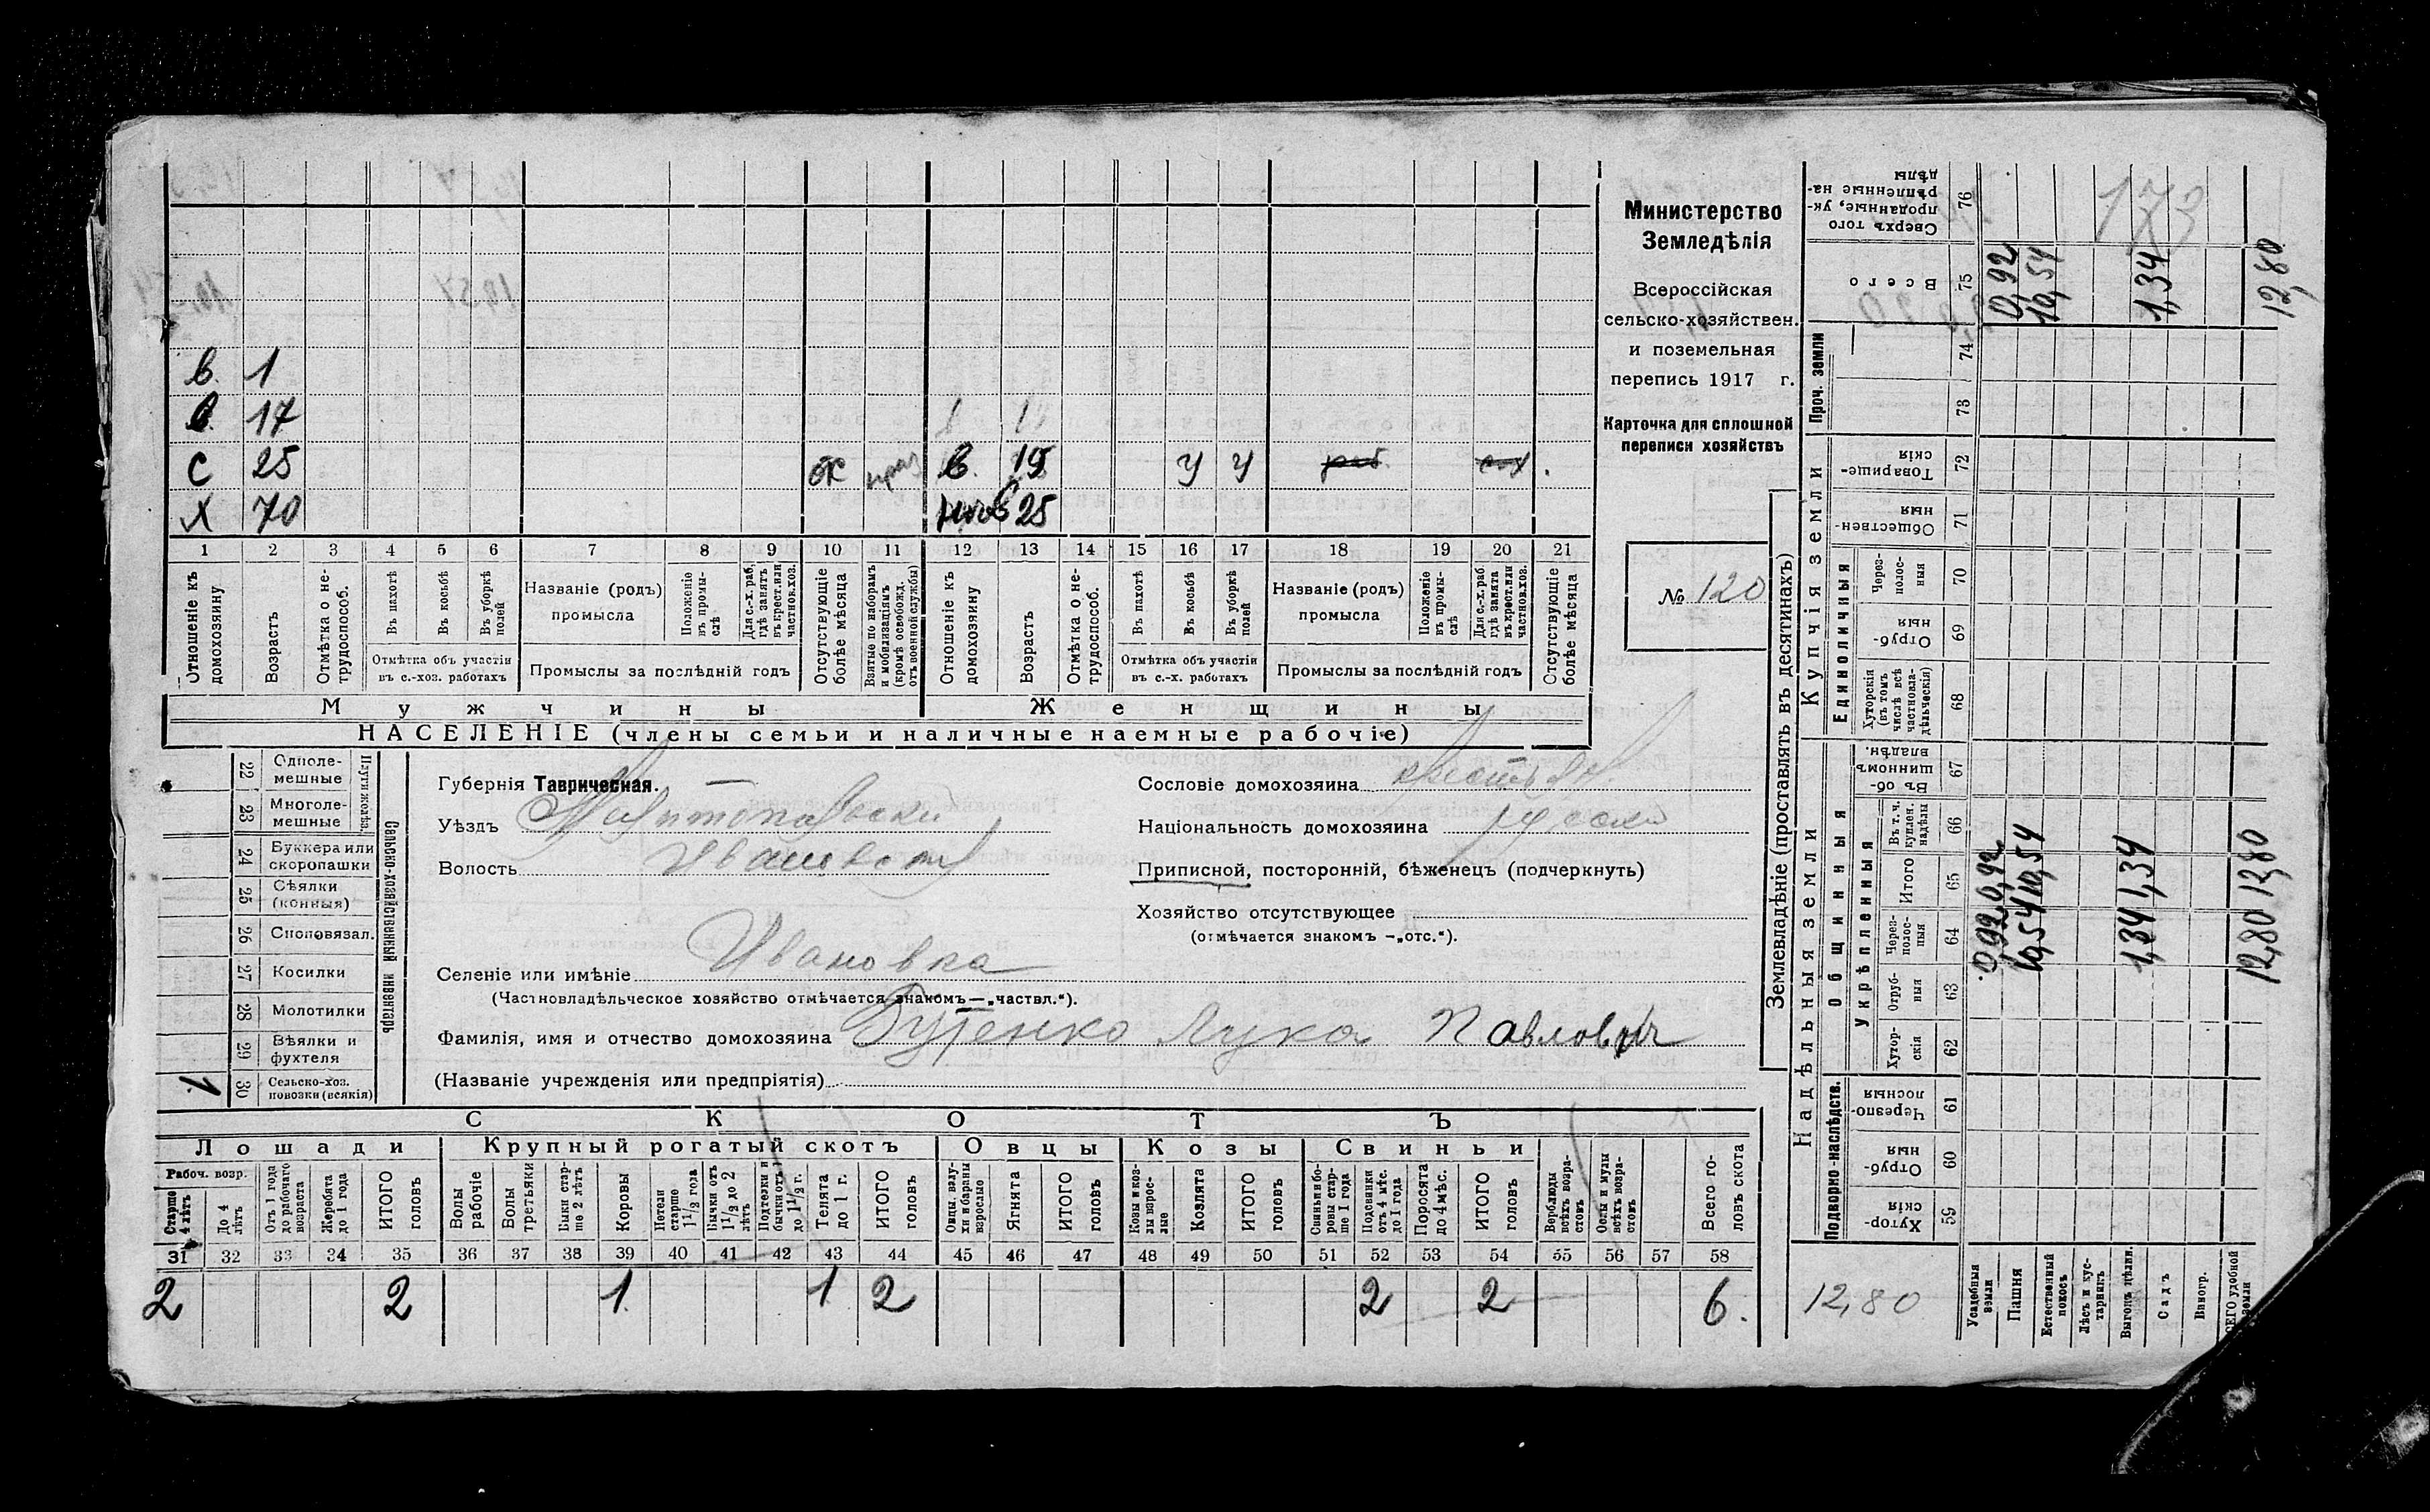 в. 1
в. 17
С 25 в. 15 у у
Х 70 25
1 2 3 4 5 6 7 8 9 10 11 12 13 14 15 16 17 18 19 20 21
Отношеніе къ домохозяину
Возрастъ
Отмѣтка о не-трудоспособ.
Въ пахотѣ
Въ косьбѣ
Въ уборкѣ полей
Отмѣтка объ участіи въ с.-хоз. работахъ
Названіе (родъ) промысла
Положеніе въ промы-слѣ
Для с.-х. раб. гдѣ занятъ въ крест. или частн. хоз.
Промыслы за послѣдній годъ
Отсутствующіе болѣе мѣсяца
Взятые по наборамъ и мобилизаціямъ (кромѣ освобожд. отъ военной службы)
Отношеніе къ домохозяину
Возрастъ
Отмѣтка о не-трудоспособ.
Въ пахотѣ
Въ косьбѣ
Въ уборкѣ полей
Отмѣтка объ участіи въ с.-х. работахъ
Названіе (родъ) промысла
Положеніе въ промы-слѣ
Для с.-х. раб. гдѣ занята въ крест. или частн. хоз.
Промыслы за послѣдній годъ
Отсутствующіе болѣе мѣсяца
Мужчины Женщины
НАСЕЛЕНІЕ (члены семьи и наличные наемные рабочіе)
Министерство
Земледѣлія
Всероссійская
сельско-хозяйствен.
и поземельная
перепись 1917 г.
Карточка для сплошной
переписи хозяйствъ
№ 120
22 Одноле-мешные
23 Многоле-мешные
Плуги желѣз.
24 Буккера или скоропашки
25 Сѣялки (конныя)
26 Сноповязал.
27 Косилки
28 Молотилки
29 Вѣялки и фухтеля
1 30 Сельско-хоз. повозки (всякія)
Сельско-хозяйственный инвентарь
Губернія Таврическая.
Уѣздъ Мелитопольски
Волость Ивановск
Селеніе или имѣніе Ивановка
(Частновладѣльческое хозяйство отмѣчается знакомъ — „частвл.“).
Фамилія, имя и отчество домохозяина Бутенко Лука Павлович
(Названіе учрежденія или предпріятія)
Сословіе домохозяина крестьян.
Національность домохозяина русски
Приписной, посторонній, бѣженецъ (подчеркнуть)
Хозяйство отсутствующее
(отмѣчается знакомъ — „отс.“).
СКОТЪ
Лошади Крупный рогатый скотъ Овцы Козы Свиньи
Рабоч. возр.
Старше 4 лѣтъ
До 4 лѣтъ
Отъ 1 года до рабочаго возраста
Жеребята до 1 года
ИТОГО головъ
Волы рабочіе
Волы третьяки
Быки стар-ше 2 лѣтъ
Коровы
Нетели старше 1½ года
Бычки отъ 1½ до 2 лѣтъ
Подтелки и бычки отъ 1 до 1½ г.
Телята до 1 г.
ИТОГО головъ
Овцы, валу-хи и бараны взрослые
Ягнята
ИТОГО головъ
Козы и коз-лы взрос-лые
Козлята
ИТОГО головъ
Свиньи и бо-ровы стар-ше 1 года
Подсвинки отъ 4 мѣс. до 1 года
Поросята до 4 мѣс.
ИТОГО головъ
Верблюды всѣхъ возра-стовъ
Ослы и мулы всѣхъ возра-стовъ
Всего го-ловъ скота
31 32 33 34 35 36 37 38 39 40 41 42 43 44 45 46 47 48 49 50 51 52 53 54 55 56 57 58
2 2 1 1 2 2 2 6.
Землевладѣніе (проставлять въ десятинахъ)
Надѣльныя земли Купчія земли Проч. земли
Подворно-наслѣдств. Общинныя Единоличныя
Укрѣпленныя
59 Хутор-скія
60 Отруб-ныя
61 Черезпо-лосныя
62 Хутор-скія
63 Отруб-ныя
64 Через-полос-ныя
65 Итого
66 Въ т. ч. куплен. надѣлы
67 Въ об-щинномъ владѣн.
68 Хуторскія (въ томъ числѣ всѣ частновла-дѣльческія)
69 Отруб-ныя
70 Через-полос-ныя
71 Обществен-ныя
72 Товарище-скія
73
74
75 Всего
76 Сверхъ того проданные, ук-рѣпленные на-дѣлы
Усадебныя земли 0,92 0,92 0,92
Пашня 10,54 10,54 10,54
Естественный покосъ
Лѣсъ и кус-тарникъ
Выгонъ цѣлин. 1,34 1,34 1,34
Садъ
Виногр.
ВСЕГО удобной земли 12,80 12,80 12,80
12,80
173